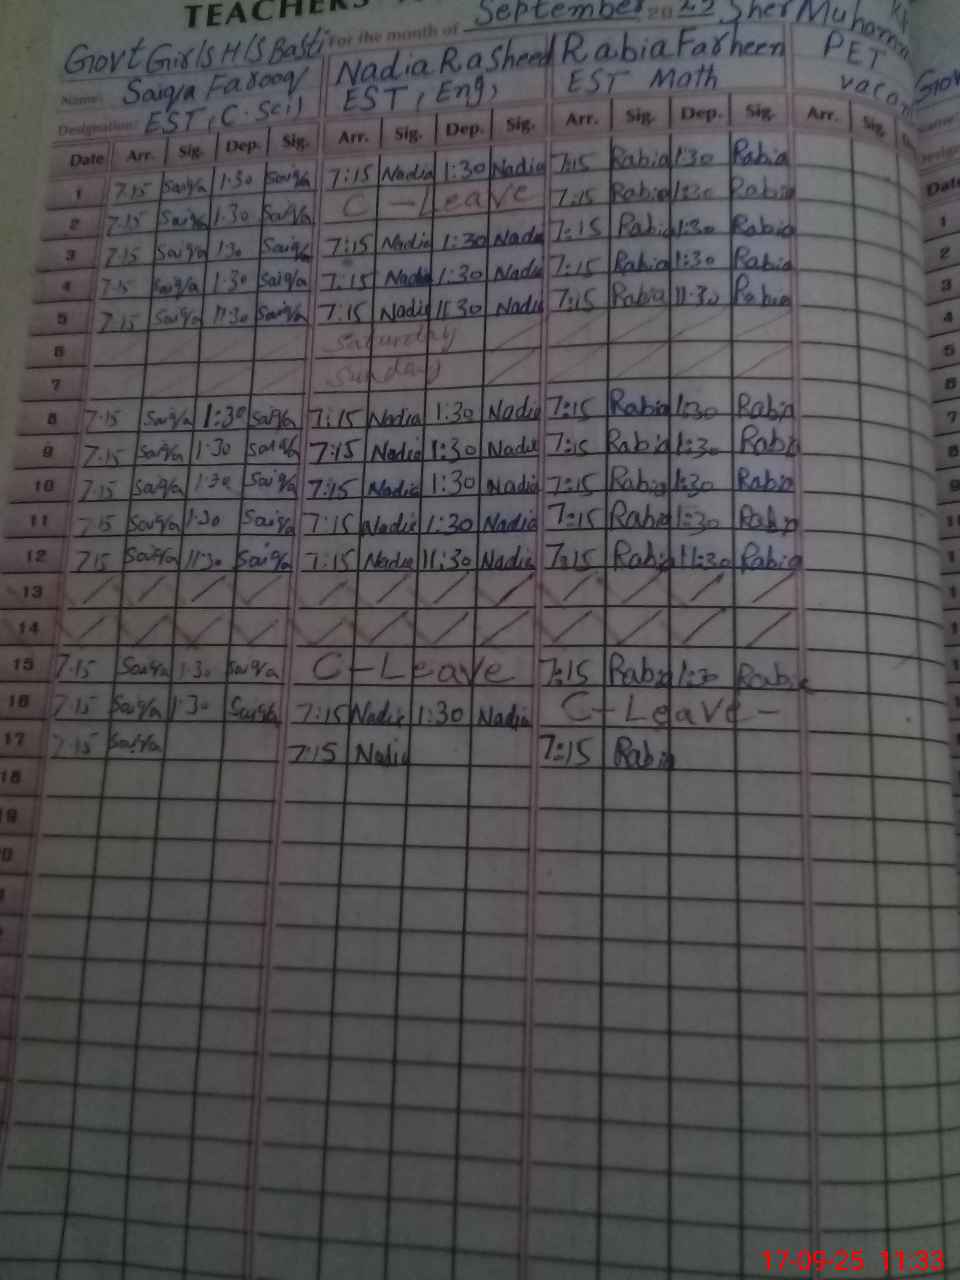 TEACHERS
For the month of September 2025 Sher Muhamm
Govt Girls H/S Basti
Name: Saiqa Farooq Nadia Rasheed Rabia Farheen PET
Designation: EST, C.Sci EST, Eng, EST Math vacan
Date Arr. Sig. Dep. Sig. Arr. Sig. Dep. Sig. Arr. Sig. Dep. Sig. Arr. Sig.
1 7:15 Saiqa 1:30 Saiqa 7:15 Nadia 1:30 Nadia 7:15 Rabia 1:30 Rabia
2 7:15 Saiqa 1:30 Saiqa C-Leave 7:15 Rabia 1:30 Rabia
3 7:15 Saiqa 1:30 Saiqa 7:15 Nadia 1:30 Nadia 7:15 Rabia 1:30 Rabia
4 7:15 Saiqa 1:30 Saiqa 7:15 Nadia 1:30 Nadia 7:15 Rabia 1:30 Rabia
5 7:15 Saiqa 11:30 Saiqa 7:15 Nadia 11:30 Nadia 7:15 Rabia 11:30 Rabia
6 Saturday
7 Sunday
8 7:15 Saiqa 1:30 Saiqa 7:15 Nadia 1:30 Nadia 7:15 Rabia 1:30 Rabia
9 7:15 Saiqa 1:30 Saiqa 7:15 Nadia 1:30 Nadia 7:15 Rabia 1:30 Rabia
10 7:15 Saiqa 1:30 Saiqa 7:15 Nadia 1:30 Nadia 7:15 Rabia 1:30 Rabia
11 7:15 Saiqa 1:30 Saiqa 7:15 Nadia 1:30 Nadia 7:15 Rabia 1:30 Rabia
12 7:15 Saiqa 11:30 Saiqa 7:15 Nadia 11:30 Nadia 7:15 Rabia 11:30 Rabia
13
14
15 7:15 Saiqa 1:30 Saiqa C-Leave 7:15 Rabia 1:30 Rabia
16 7:15 Saiqa 1:30 Saiqa 7:15 Nadia 1:30 Nadia C-Leave-
17 7:15 Saiqa 7:15 Nadia 7:15 Rabia
18
19
20
17-09-25 11:33